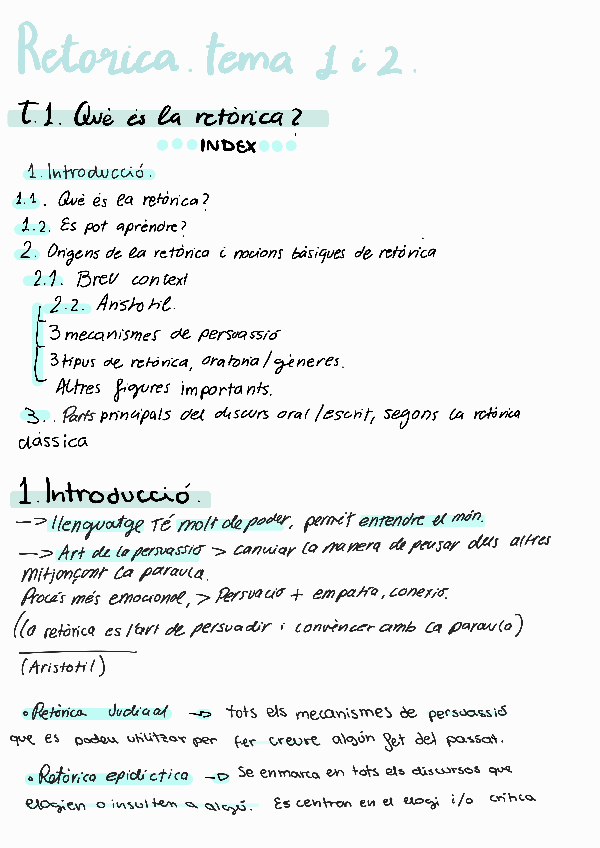 Retorica. tema 1 i 2.
T.1. Què és la retòrica?
INDEX
1. Introducció.
1.1. Què és la retòrica?
1.2. Es pot aprendre?
2. Orígens de la retòrica i nocions bàsiques de retòrica
2.1. Breu context
2.2. Aristotil.
3 mecanismes de persuassió
3 tipus de retòrica, oratoria/gèneres.
Altres figures importants.
3.. Parts principals del discurs oral/escrit, segons la retòrica
clàssica
1. Introducció.
—> llenguatge Té molt de poder, permet entendre el món.
—> Art de la persuassió > canviar la manera de pensar dels altres
mitjançant la paraula.
Procés més emocional, > Persuació + empatia, conexió.
((la retòrica es l'art de persuadir i convèncer amb la paraula)
(Aristotil)
• Retòrica Judicial —> tots els mecanismes de persuassió
que es poden utilitzar per fer creure algún fet del passat.
• Retòrica epidictica —> Se enmarca en tots els discursos que
elogien o insulten a algú. Es centran en el elogi i/o crítica